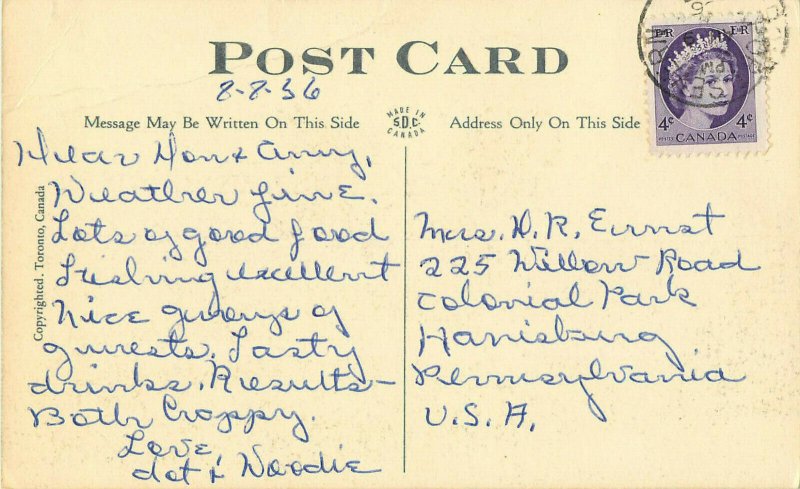 POST CARD
8-8-56
Message May Be Written On This Side
MADE IN S.D.C. CANADA
Address Only On This Side
E R
4¢ 4¢
POSTES CANADA POSTAGE
Copyrighted. Toronto, Canada
Dear Don & Anny,
Weather fine.
Lots of good food
Fishing excellent
Nice group of
guests. Tasty
drinks. Results-
Both Croppy.
Love,
dot & Woodie
Mrs. D. R. Ernst
225 Willow Road
Colonial Park
Harrisburg
Pennsylvania
U.S.A.